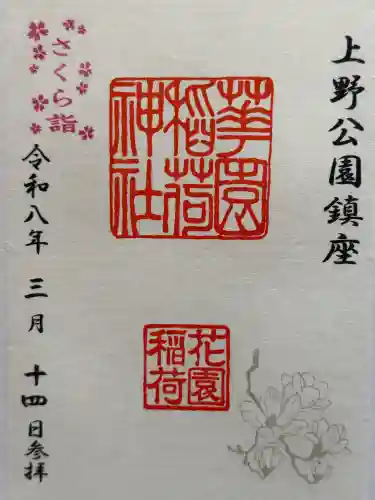 上野公園鎮座
華園
稲荷
神社
花園
稲荷
さくら詣
令和八年 三月 十四日参拝